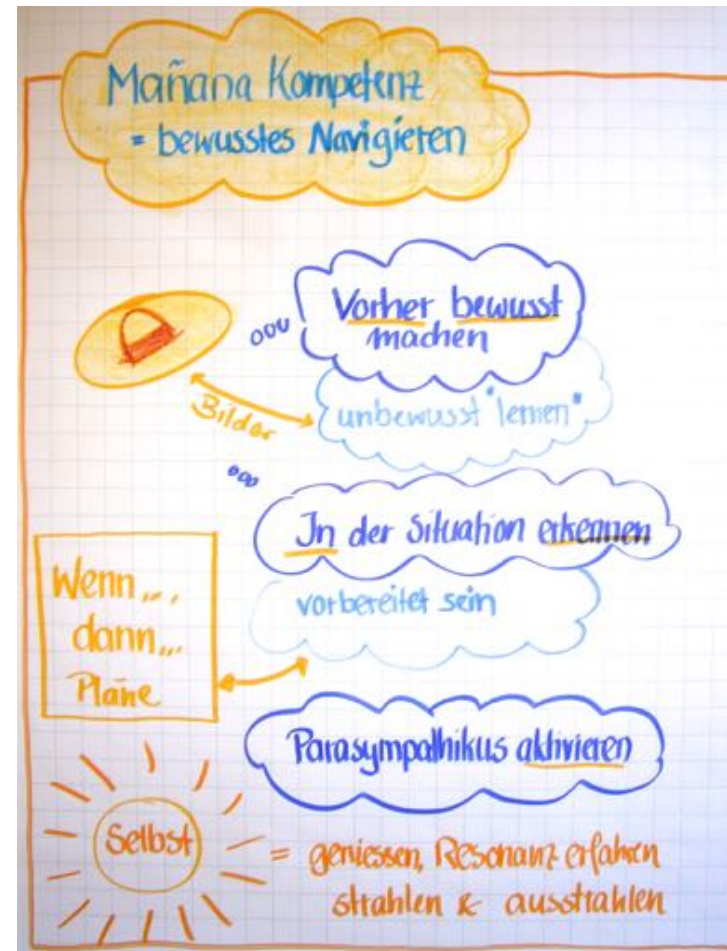 Mañana Kompetenz
= bewusstes Navigieren
Vorher bewusst
machen
Bilder
unbewusst "lernen"
In der Situation erkennen
Wenn...,
dann...
Pläne
vorbereitet sein
Parasympathikus aktivieren
Selbst
= geniessen, Resonanz erfahren
strahlen & ausstrahlen